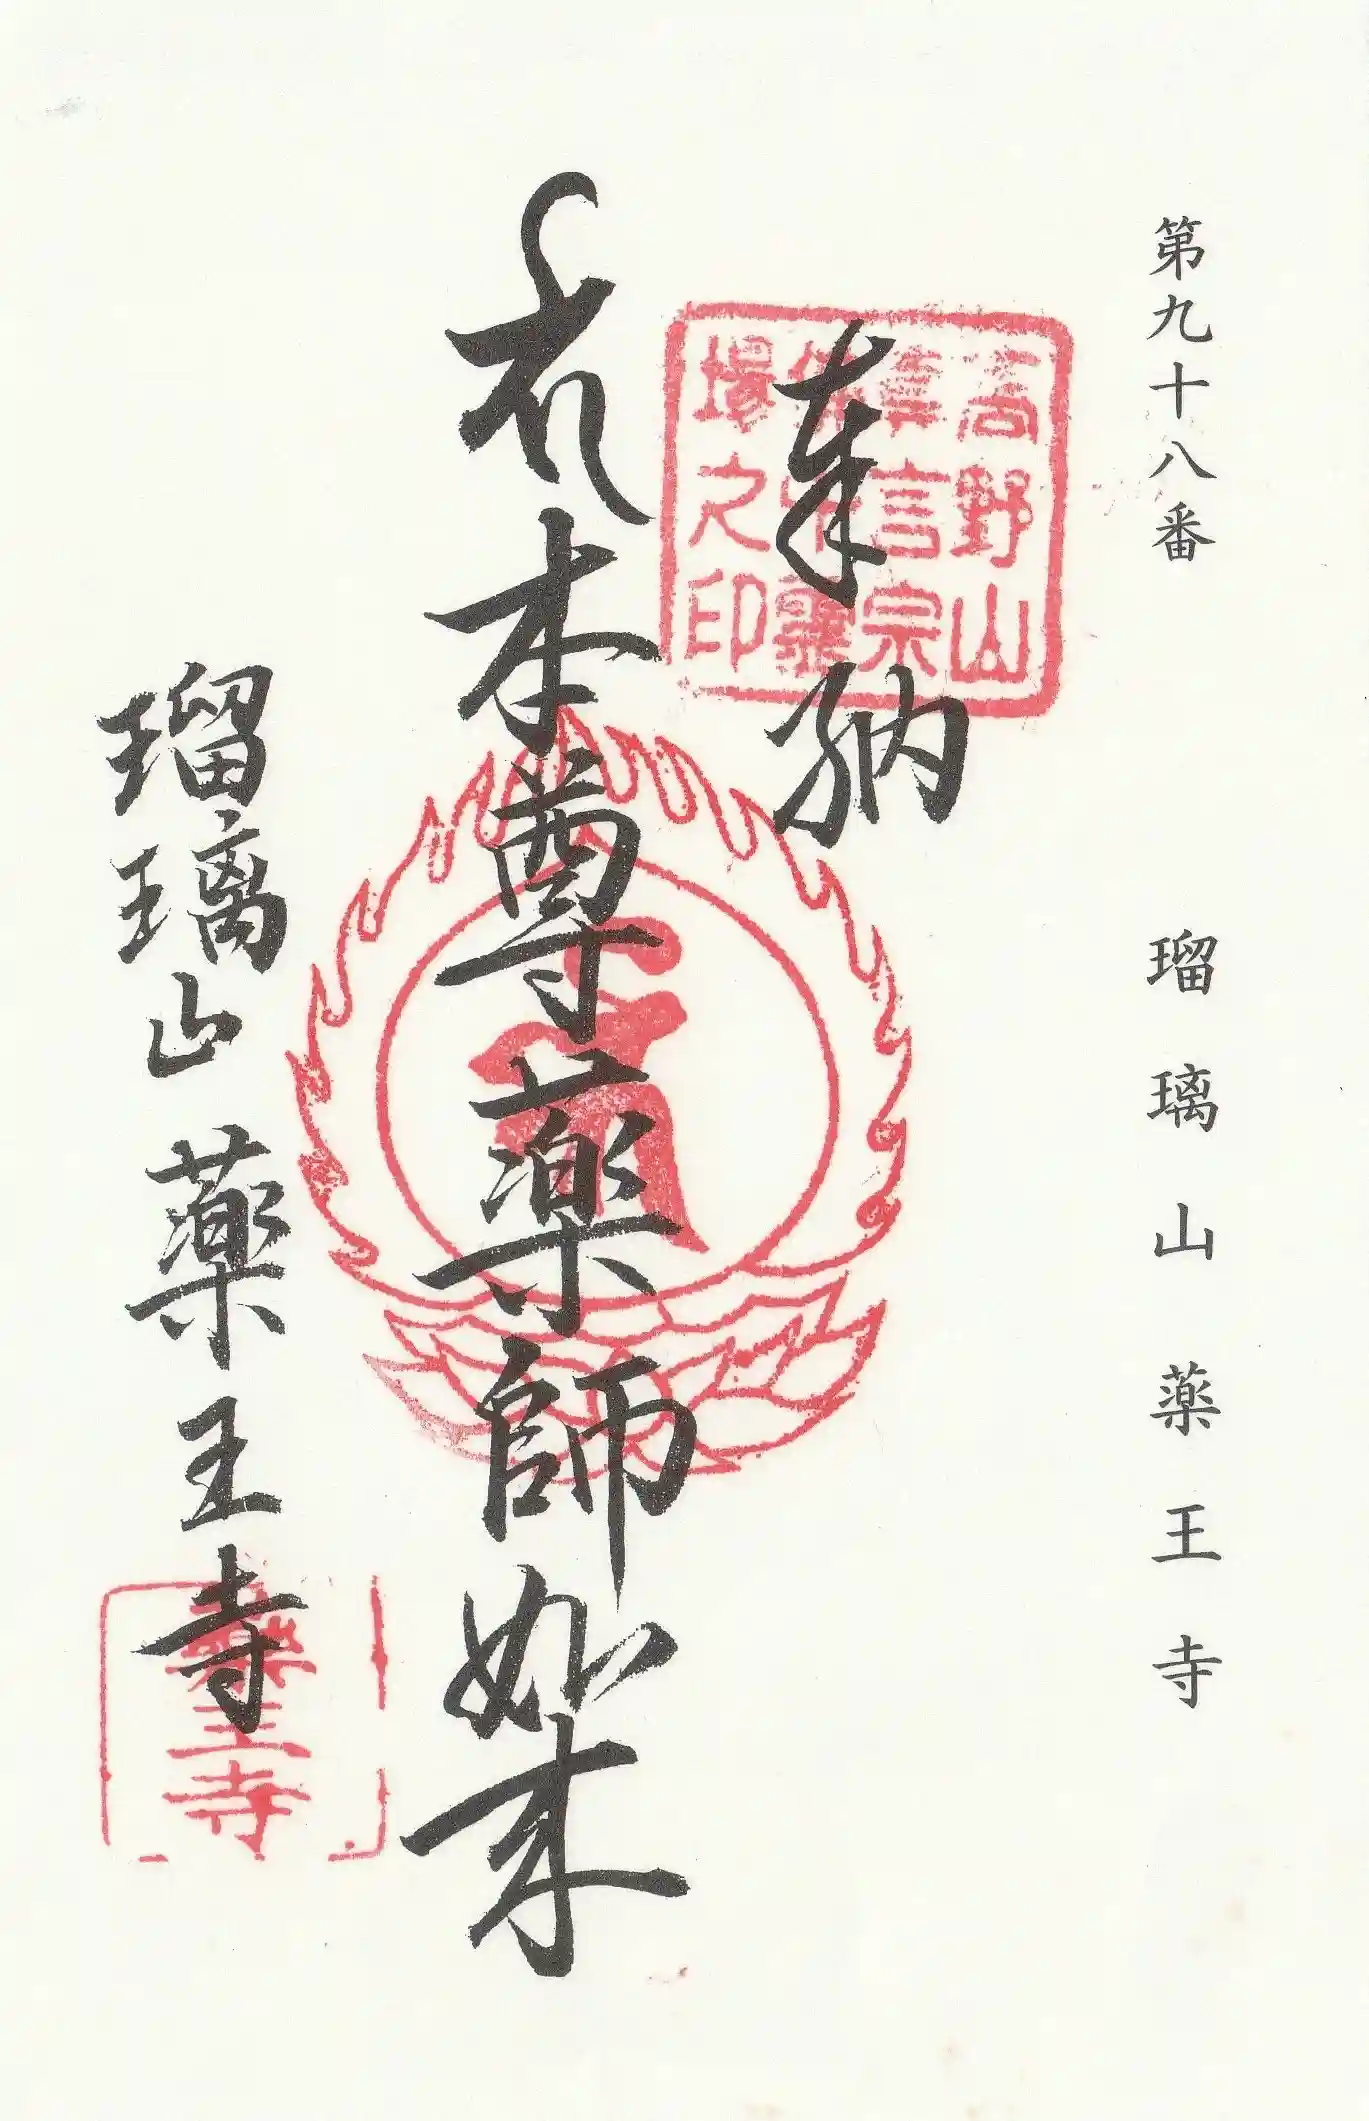 第九十八番 瑠璃山薬王寺
奉納
高野山
真言宗
場之印
本尊薬師如来
瑠璃山 薬王寺
藥王寺